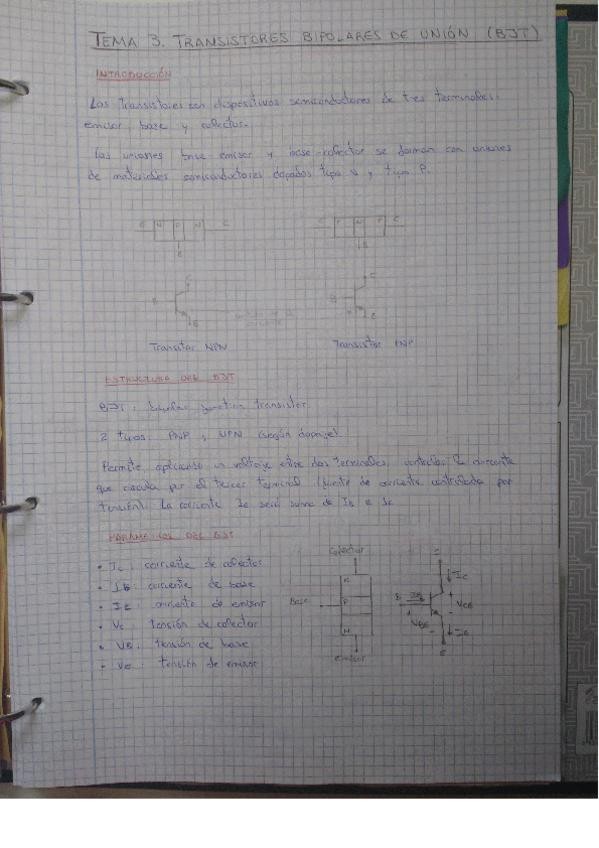 TEMA 3. TRANSISTORES BIPOLARES DE UNIÓN (BJT)
INTRODUCCIÓN
Los transistores son dispositivos semiconductores de tres terminales:
emisor, base y colector.
Las uniones base-emisor y base-colector se forman con uniones
de materiales semiconductores dopados tipo N y tipo P.
E N P N C
B
E P N P C
B
C
B
E
C
B
E
Transistor NPN
Transistor PNP
ESTRUCTURA DEL BJT
BJT: junction transistor
2 tipos: PNP y NPN (según dopaje)
Permite, aplicando un voltaje entre dos terminales, controlar la corriente
que circula por el tercer terminal (fuente de corriente controlada por
tensión). La corriente IE será suma de IB e IC
PARÁMETROS DEL BJT
• IC: corriente de colector
• IB: corriente de base
• IE: corriente de emisor
• VC: tensión de colector
• VB: tensión de base
• VE: tensión de emisor
Colector
N
Base
P
N
Emisor
C
IC
B
IB
VCE
VBE
IE
E